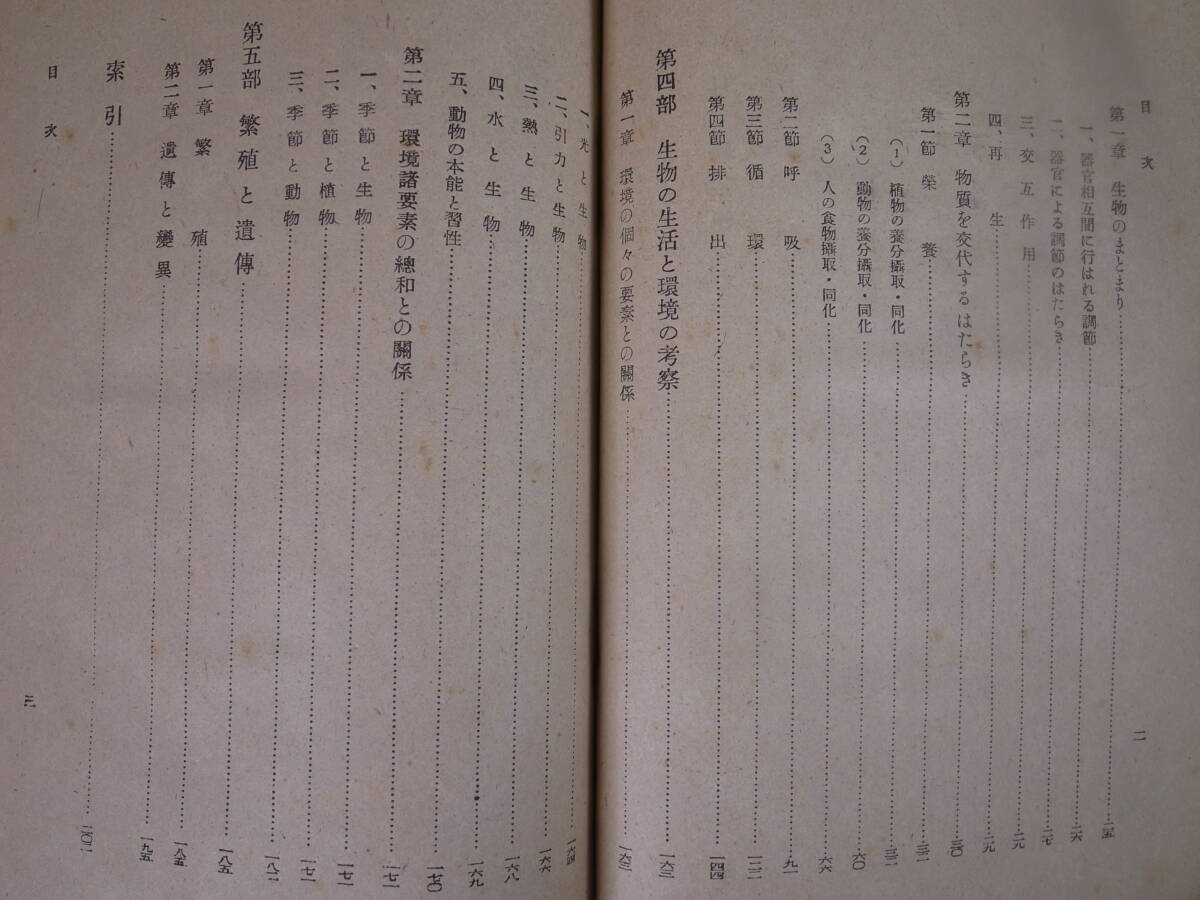 目次
第一章 生物のまとまり……二五
一、器官相互間に行はれる調節……二六
二、器官による調節のはたらき……二七
三、交互作用……二九
四、再生……二九
第二章 物質を交代するはたらき……三〇
第一節 榮養……三二
(1) 植物の養分攝取・同化……三二
(2) 動物の養分攝取・同化……六〇
(3) 人の食物攝取・同化……六六
第二節 呼吸……九一
第三節 循環……一二二
第四節 排出……一四四
第四部 生物の生活と環境の考察……一六三
第一章 環境の個々の要素との關係……一六三
二
一、光と生物……一六四
二、引力と生物……一六六
三、熱と生物……一六八
四、水と生物……一六九
五、動物の本能と習性……一七〇
第二章 環境諸要素の總和との關係……一七一
一、季節と生物……一七一
二、季節と植物……一七一
三、季節と動物……一八二
第五部 繁殖と遺傳……一八五
第一章 繁殖……一八五
第二章 遺傳と變異……一九五
索引……二〇二
目次
三